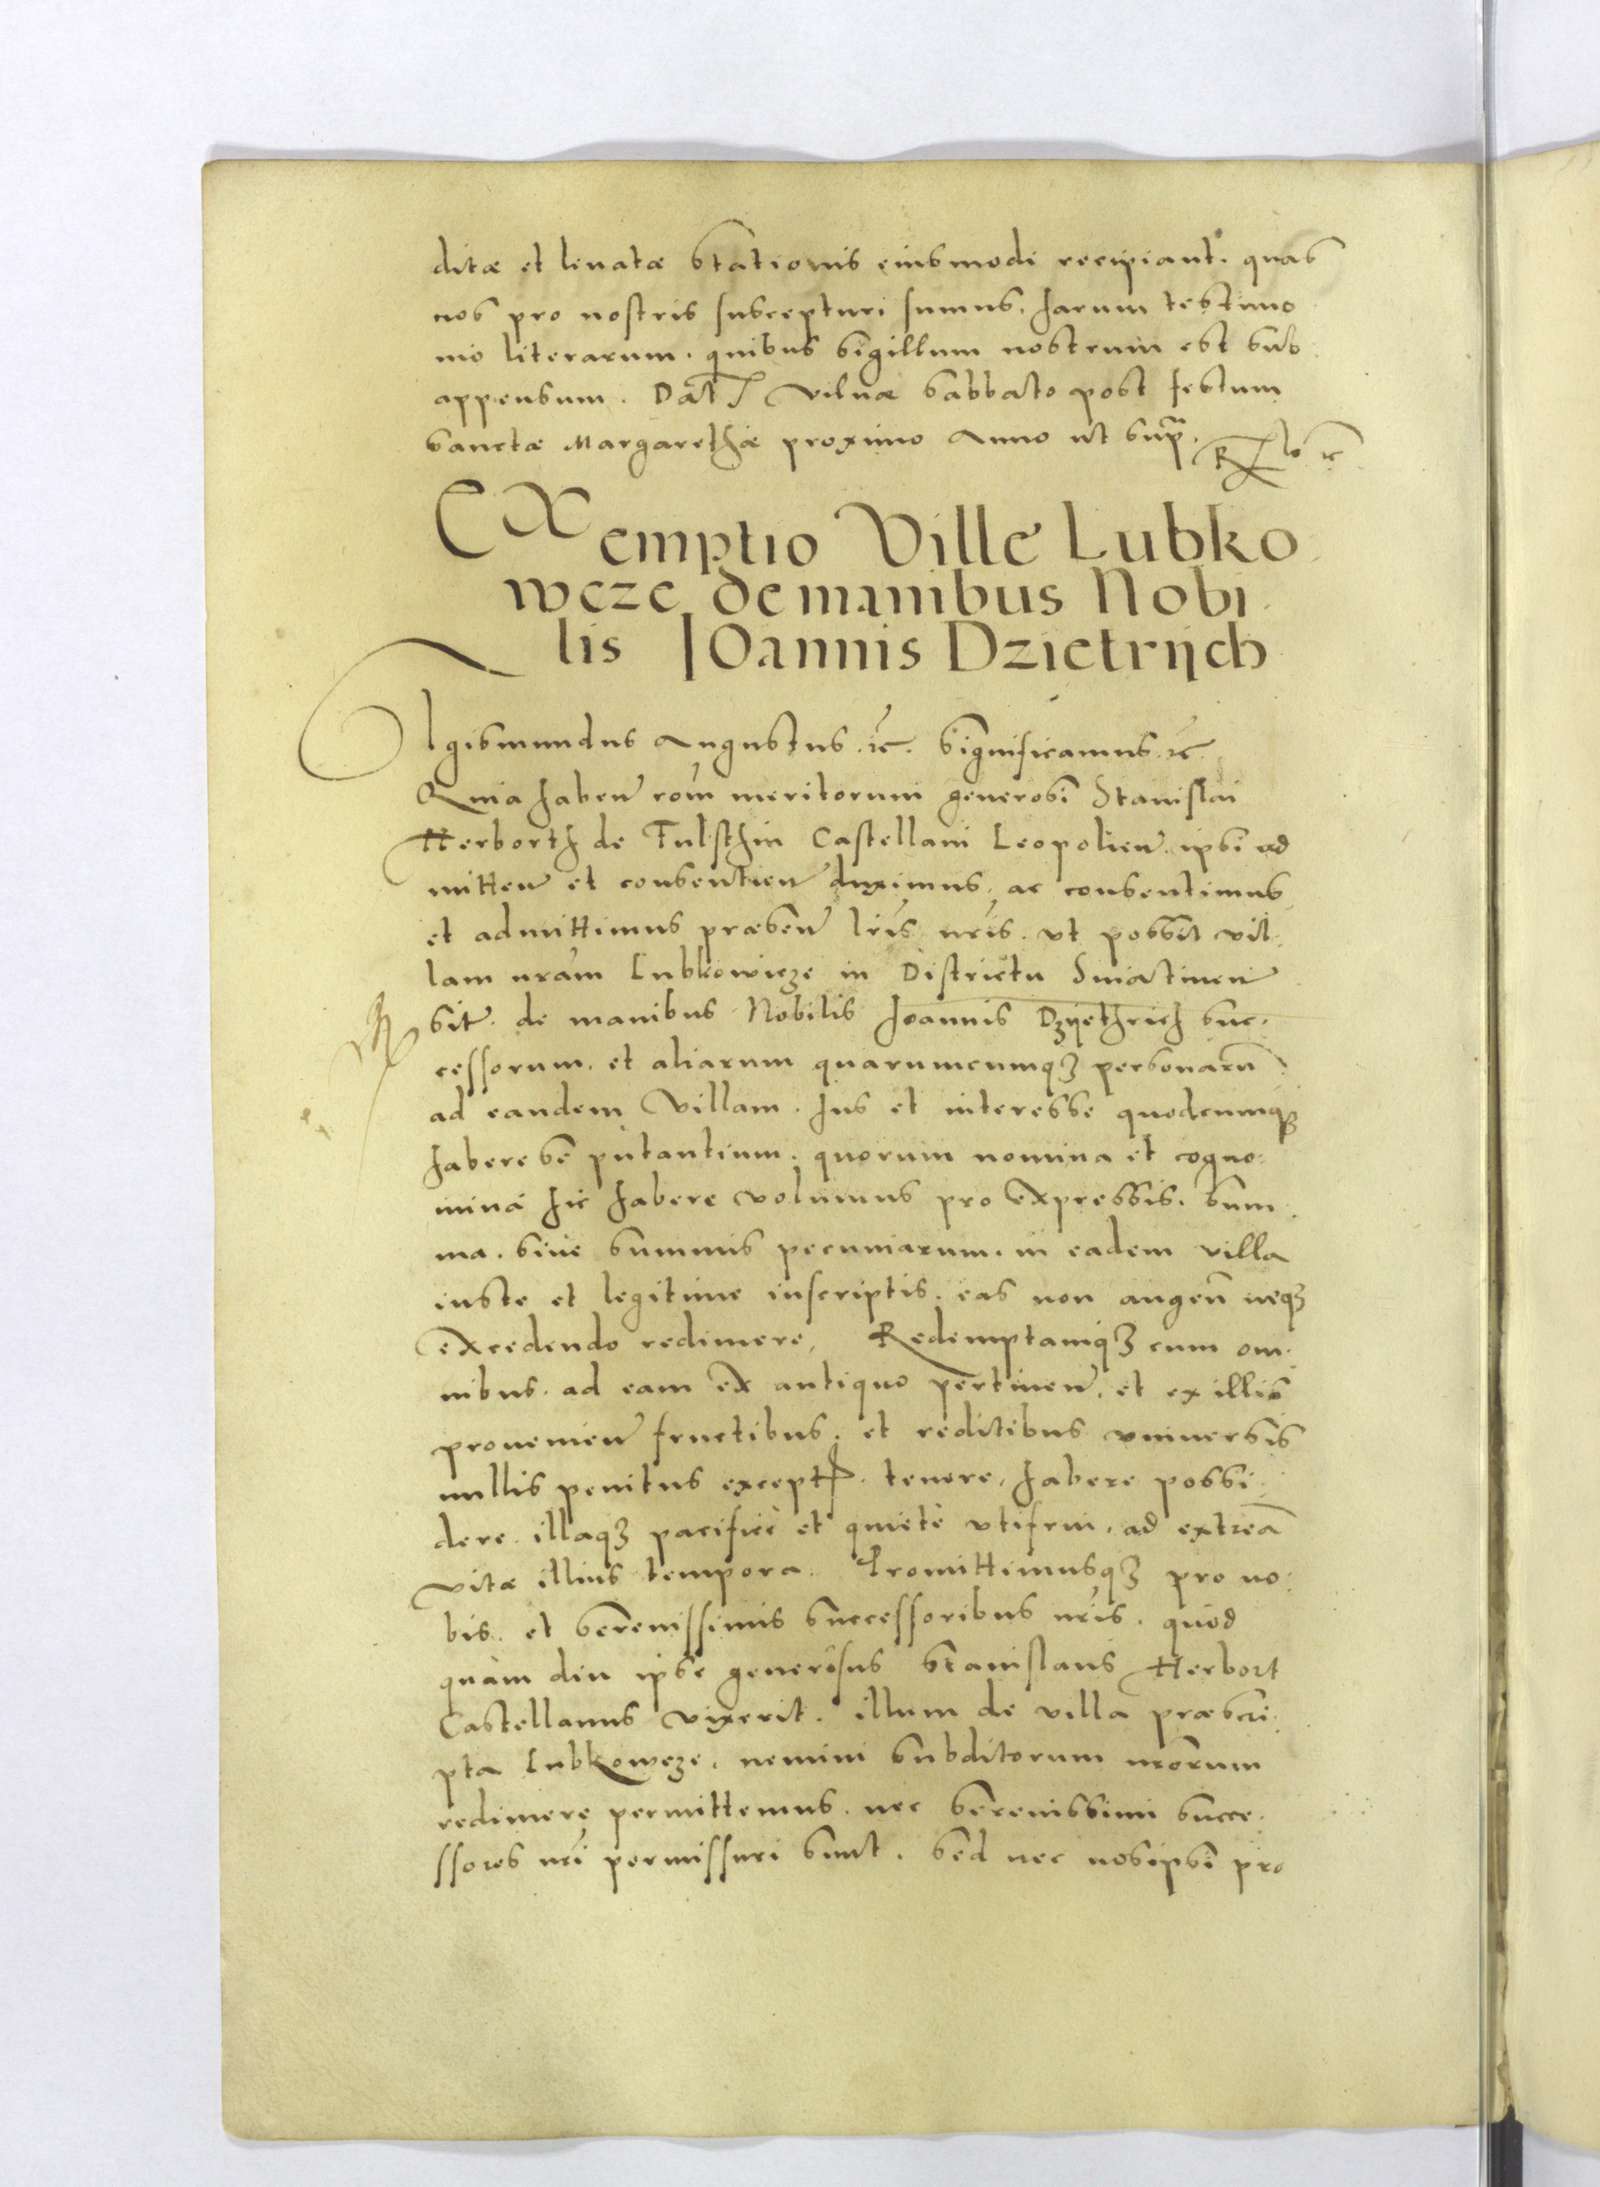 ditæ et leuatæ stationis eiusmodi recipiant. quas
nos pro nostris suscepturi sumus. harum testimo
nio literarum. quibus sigillum nostrum est sub
appensum. Dat Vilnæ Sabbato post festum
Sanctæ Margarethæ proximo Anno ut supra.
EXemptio Ville Lubko
wcze de manibus Nobi
lis Joannis Dzietrijch
Igismundus Augustus. etc. Significamus etc
Quia haben rom meritorum generosi Stanislai
Herborth de Fulsthin Castellani Leopolien. ipsi ad
mitten et consentien duximus. ac consentimus
et admittimus præsen lris nris. ut possit vil
lam nram Lubkowicze in Districtu Sniatinen
sit. de manibus Nobilis Joannis Dzijethrich suc
cessorum. et aliarum quarumcunqz personaru
ad eandem villam. Ius et interesse quodcumqz
habere se putantium. quorum nomina et cogno
mina hic habere volumus pro expressis. sum
ma. siue summis pecuniarum. in eadem villa
iuste et legitime inscriptis. eas non augen neqz
excedendo redimere, Redemptamqz cum om
nibus. ad eam ex antiquo pertinen. et ex illis
prouenien fructibus. et reditibus vniuersis
nullis penitus except. tenere, habere possi
dere. illaqz pacificè et quietè vtifrui. ad extrea
vitæ illius tempora. Promittimusqz pro no
bis. et serenissimis successoribus nris. quod
quàm diu ipse generosus Stanislaus Herbort
Castellanus vixerit. illum de villa præscri
pta Lubkowcze. nemini subditorum nrorum
redimere permittemus. nec serenissimi succe
ssores nri permissuri sunt. Sed nec nosipsi pro